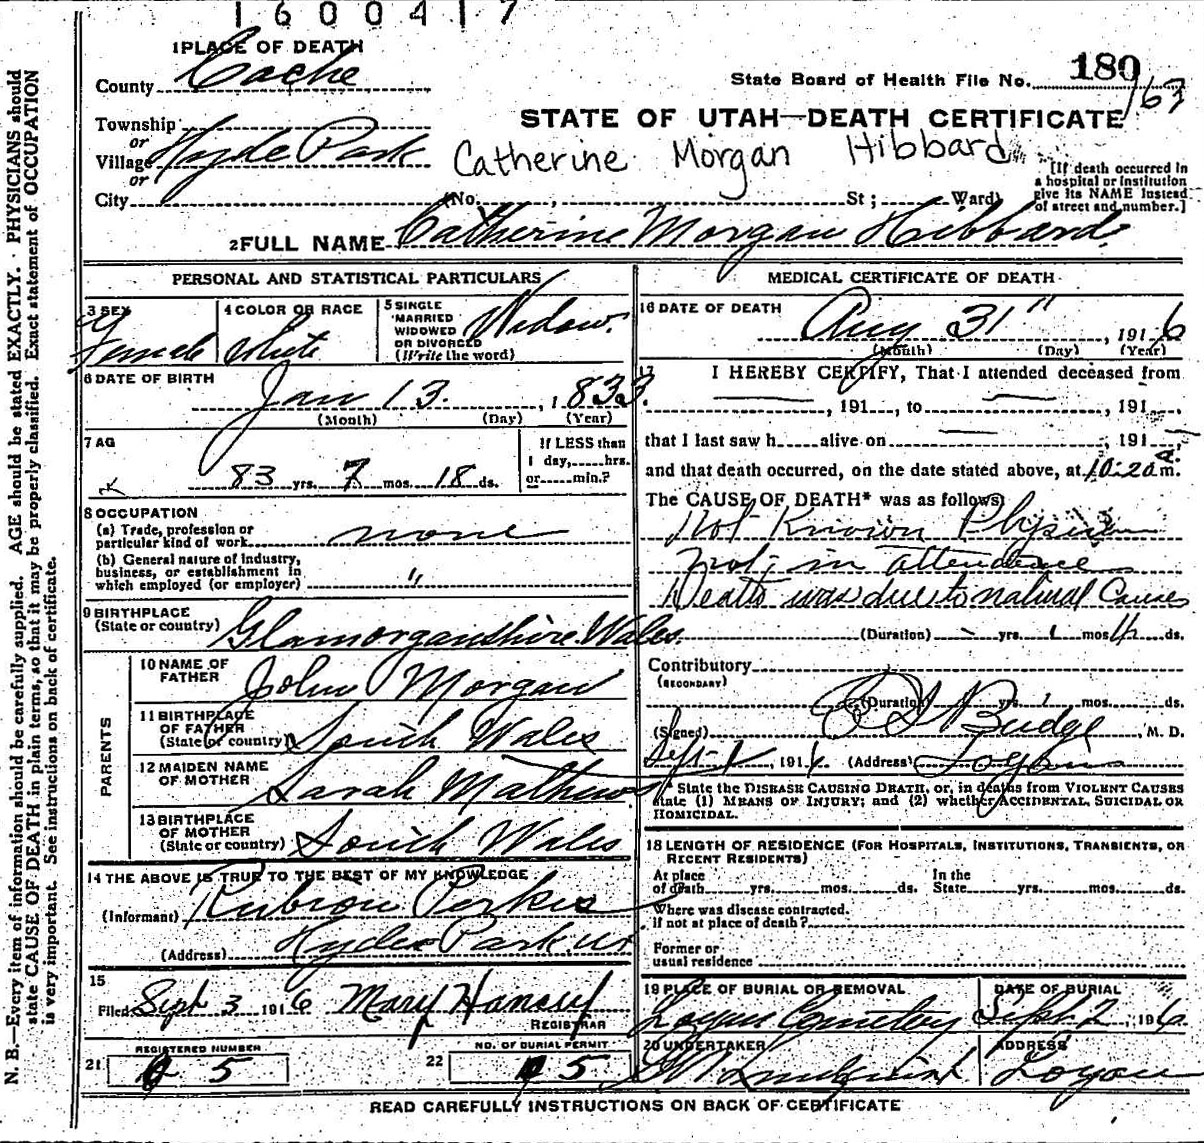 1600417
1 PLACE OF DEATH
County Cache
State Board of Health File No. 180
163
Township
or
Village Hyde Park
or
City
STATE OF UTAH—DEATH CERTIFICATE
Catherine Morgan Hibbard
(No. , St; Ward)
[If death occurred in
a hospital or institution
give its NAME instead
of street and number.]
2 FULL NAME Catherine Morgan Hibbard.
PERSONAL AND STATISTICAL PARTICULARS
3 SEX
Female
4 COLOR OR RACE
White
5 SINGLE
MARRIED
WIDOWED
OR DIVORCED
(Write the word)
Widow.
6 DATE OF BIRTH
Jan 13, 1833.
(Month) (Day) (Year)
7 AG
83 yrs. 7 mos. 18 ds.
If LESS than
1 day, hrs.
or min.?
8 OCCUPATION
(a) Trade, profession or
particular kind of work none
(b) General nature of industry,
business, or establishment in
which employed (or employer) "
9 BIRTHPLACE
(State or country) Glamorganshire. Wales.
PARENTS
10 NAME OF
FATHER John Morgan
11 BIRTHPLACE
OF FATHER
(State or country) South Wales
12 MAIDEN NAME
OF MOTHER Sarah Mathews
13 BIRTHPLACE
OF MOTHER
(State or country) South Wales
14 THE ABOVE IS TRUE TO THE BEST OF MY KNOWLEDGE
(Informant) Perkes
(Address) Hyde Park Ut
15
Filed Sept 3 1916 Mary
REGISTRAR
21 REGISTERED NUMBER
5
22 NO. OF BURIAL PERMIT
5
MEDICAL CERTIFICATE OF DEATH
16 DATE OF DEATH
Aug 31", 1916
(Month) (Day) (Year)
17 I HEREBY CERTIFY, That I attended deceased from
, 191 , to , 191
that I last saw h alive on , 191
and that death occurred, on the date stated above, at 10:20 A m.
The CAUSE OF DEATH* was as follows:
Not Known Physician
not in attendence
Death was due to natural Causes
(Duration) - yrs. 1 mos ds.
Contributory
(SECONDARY)
(Duration) yrs. mos. ds.
(Signed) Budge, M. D.
Sept 1, 1916 (Address) Logan
* State the DISEASE CAUSING DEATH, or, in deaths from VIOLENT CAUSES
state (1) MEANS OF INJURY; and (2) whether ACCIDENTAL, SUICIDAL OR
HOMICIDAL.
18 LENGTH OF RESIDENCE (FOR HOSPITALS, INSTITUTIONS, TRANSIENTS, OR
RECENT RESIDENTS)
At place
of death yrs. mos. ds.
In the
State yrs. mos. ds.
Where was disease contracted.
If not at place of death?
Former or
usual residence
19 PLACE OF BURIAL OR REMOVAL
Logan Cemetery
DATE OF BURIAL
Sept. 2, 1916
20 UNDERTAKER
Lindquist
ADDRESS
Logan
READ CAREFULLY INSTRUCTIONS ON BACK OF CERTIFICATE
N. B.—Every item of information should be carefully supplied. AGE should be stated EXACTLY. PHYSICIANS should
state CAUSE OF DEATH in plain terms, so that it may be properly classified. Exact statement of OCCUPATION
is very important. See instructions on back of certificate.